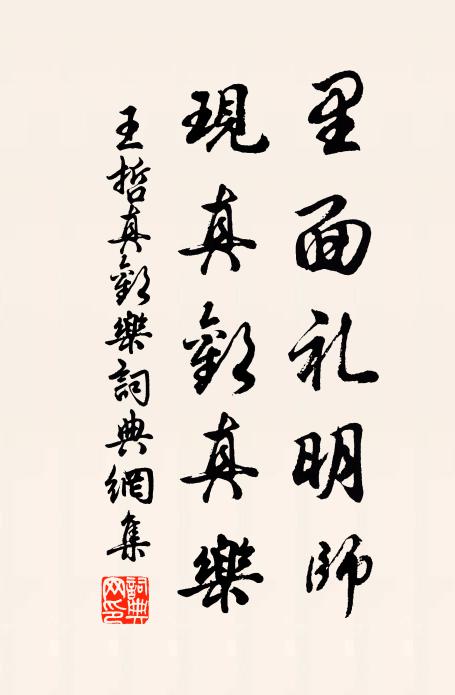 里面礼明師
現真歡真樂
王哲真歡樂詞典網集
詞典网印